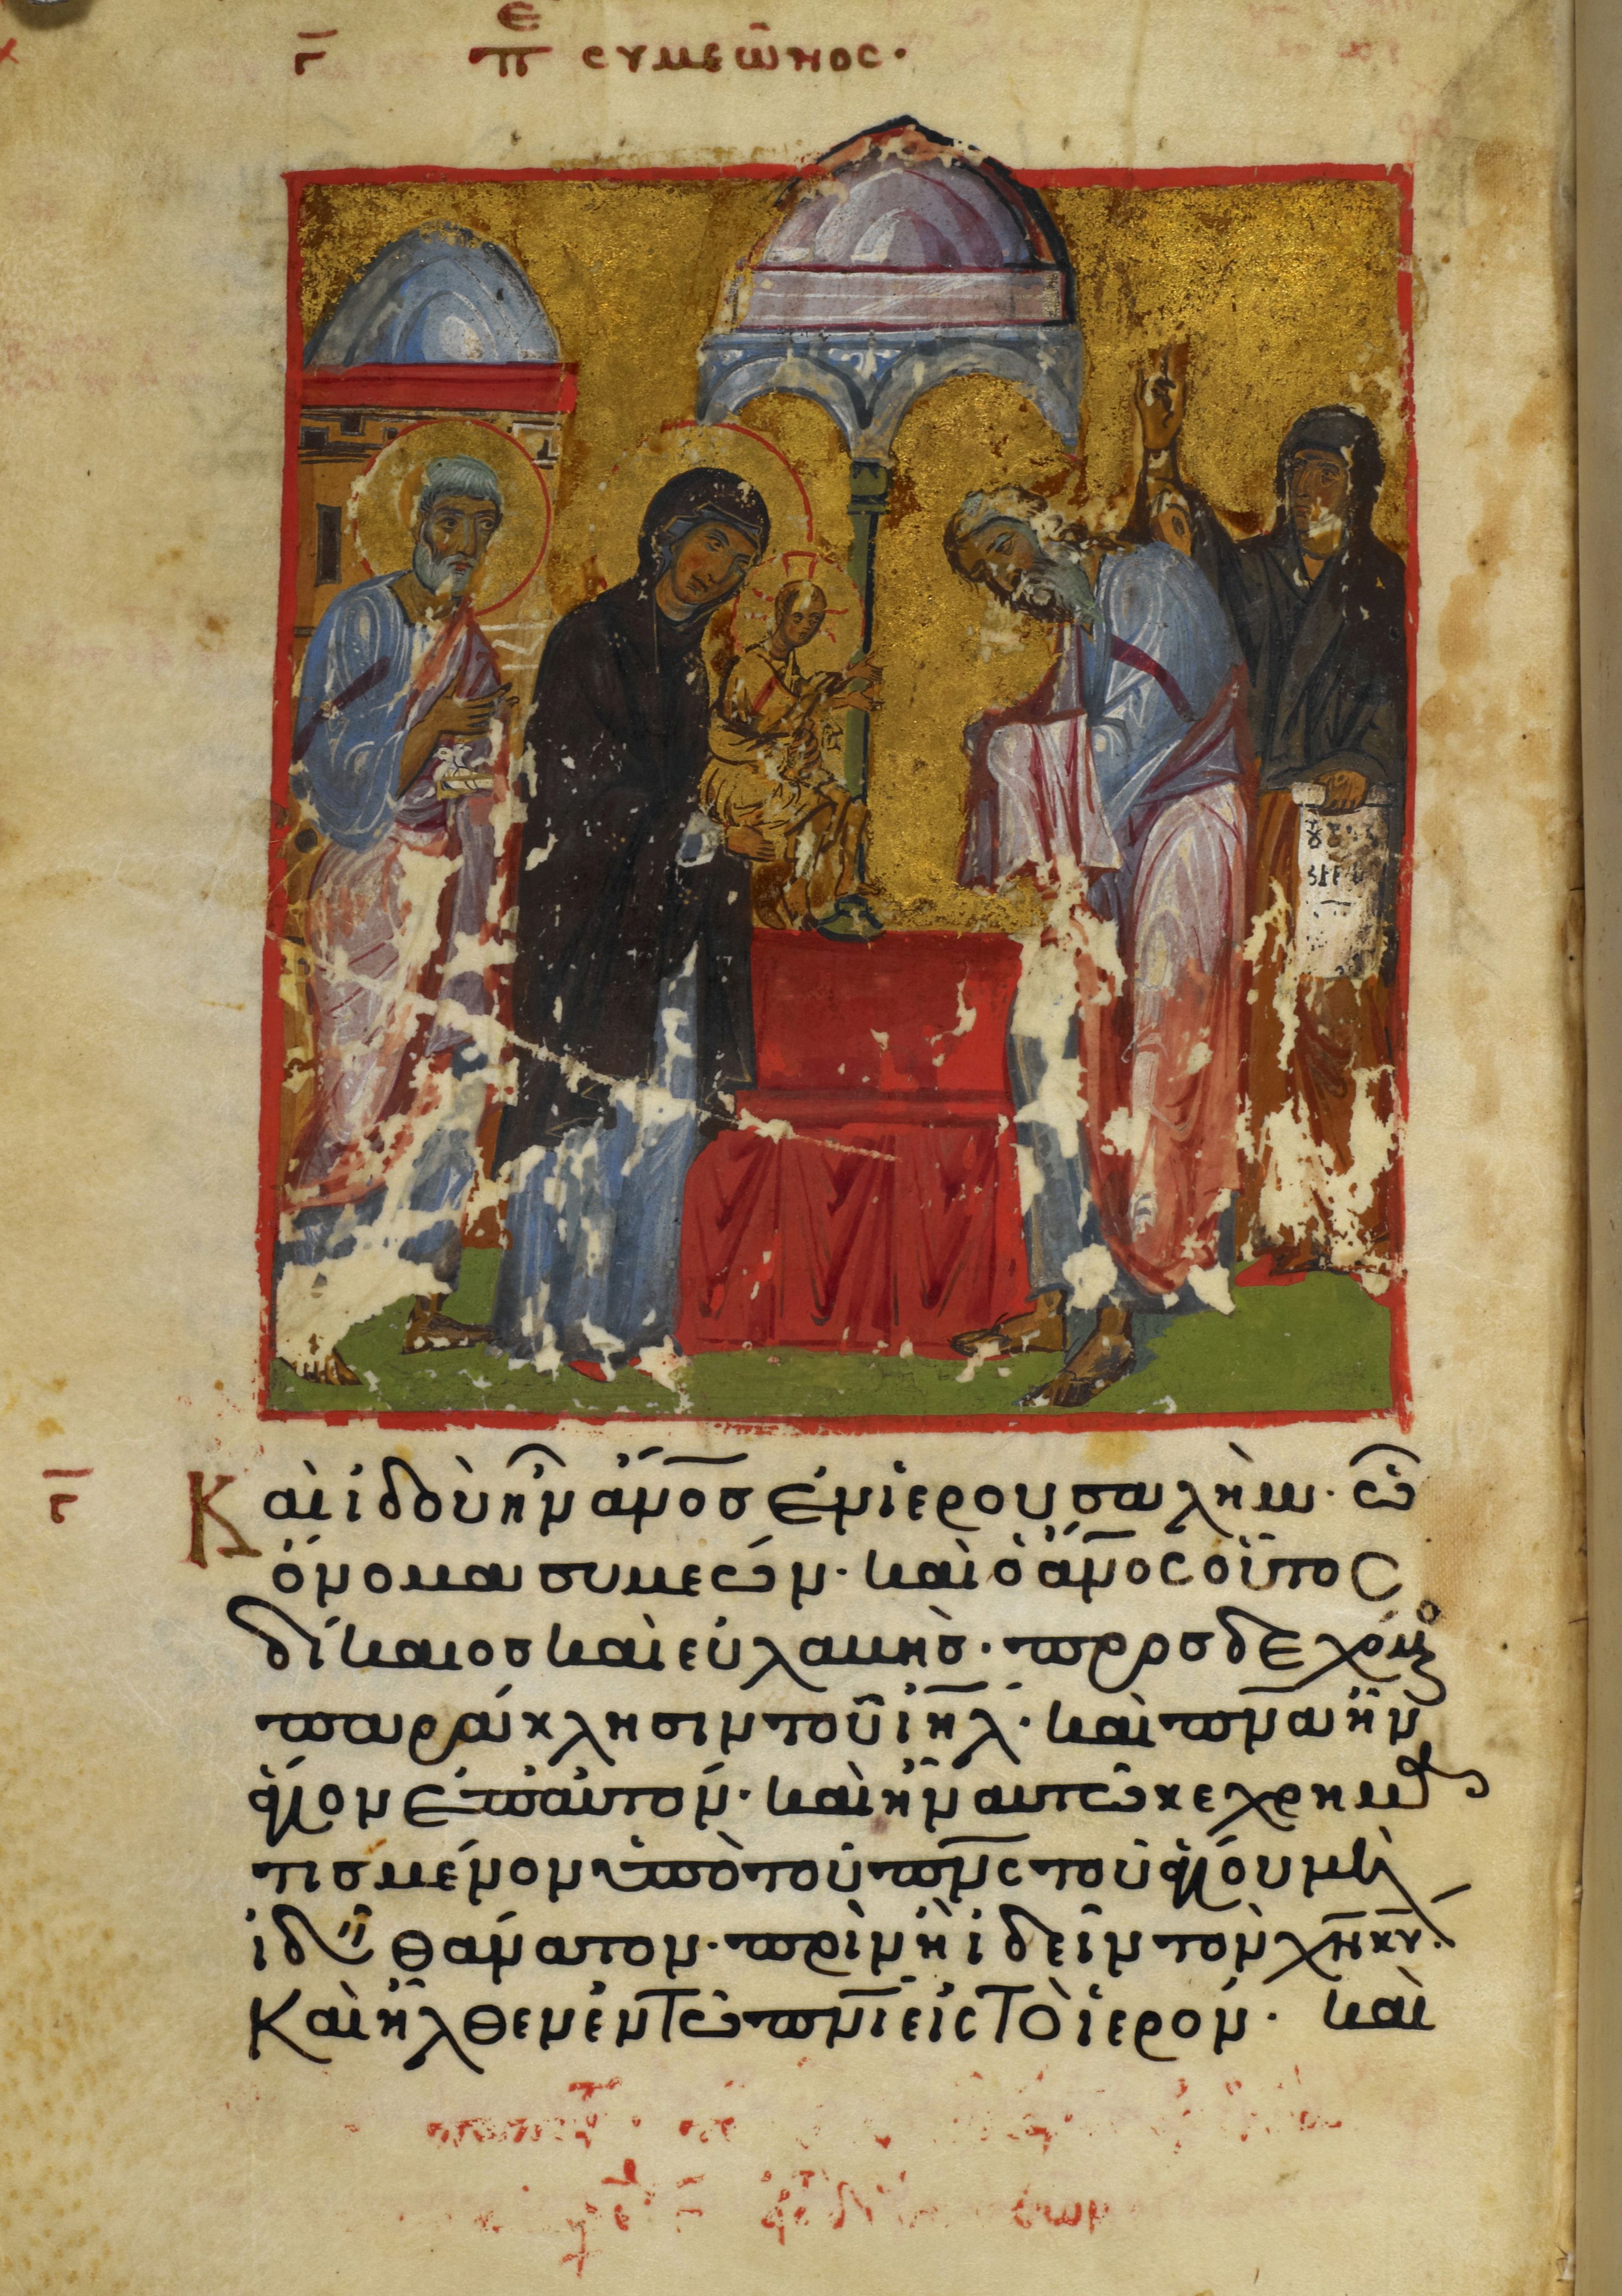 γ̄ πε συμεῶνος·
γ̄ Καὶ ἰδοὺ ἦν ἄνο̄σ ἐν ἱερουσαλὴμ· ὧ
ὄνομα συμεών· καὶ ὁ ἄνο̄ς οὗτος
δίκαιοσ καὶ εὐλαβὴσ· προσδεχόμενο
παράκλησιν τοῦ ἰη̄λ· καὶ πν̄α ἦν
ἅγιον ἐπ αὐτόν· καὶ ἦν αυτῶ κεχρημα
τισμένον ὑπὸ τοῦ πν̄ς τοῦ ἁγίου μὴ
ἰδεῖν θάνατον· πρὶν ἢ ἰδεῖν τὸν χν̄ κῡ·
Καὶ ἦλθεν ἐν τῶ πν̄ι εἰς τὸ ἱερόν· καὶ